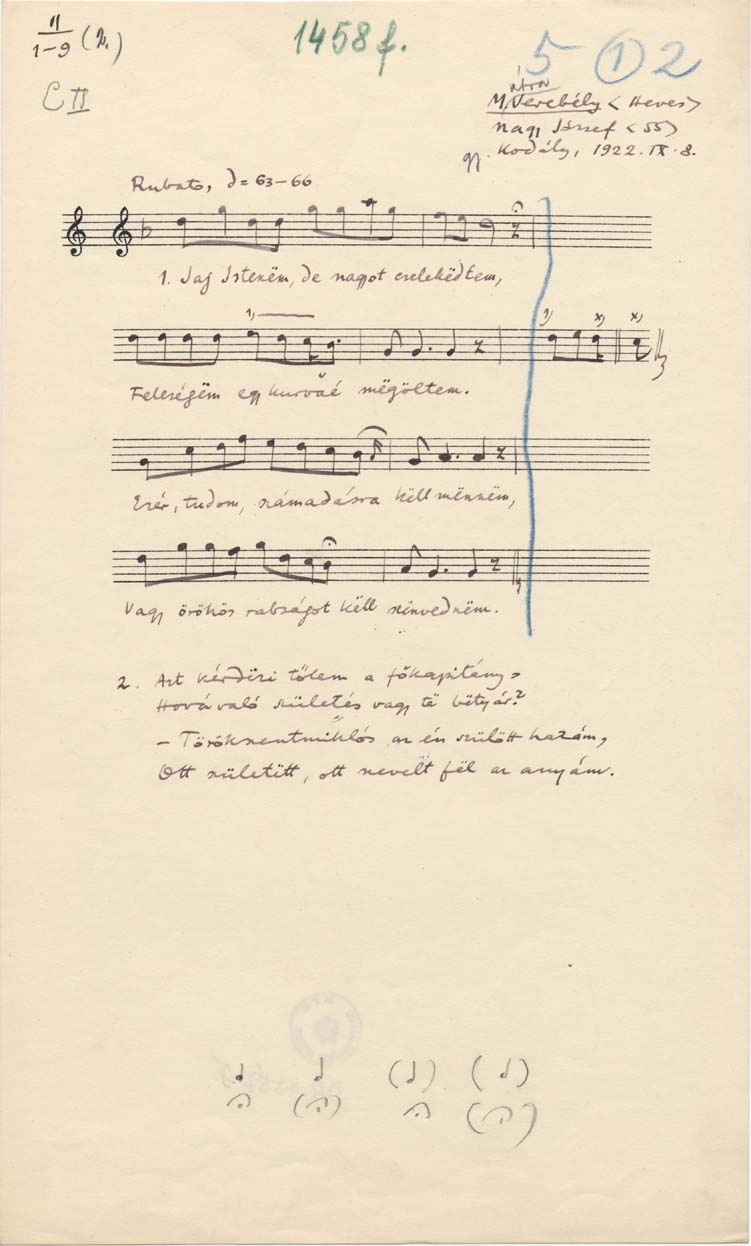 II
1–9 (2.)
1458 f.
5 ① 2
C II
Mátra Verebély <Heves>
Nagy József <55>
gy. Kodály, 1922. IX. 8.
Rubato, = 63–66
1. Jaj Istenëm, de nagyot cselekëdtem,
1)
1) x) x)
Feleségëm egy kurváé mëgöltem.
Ezér, tudom, számadásra këll mënnëm,
Vagy örökös rabságot këll szënvednëm.
2. Azt kérdëzi tőlem a főkapitány,
Hová való születés vagy të bëtyár?
– Törökszentmiklós az én szülött hazám,
Ott születëtt, ott nevelt fël az anyám.